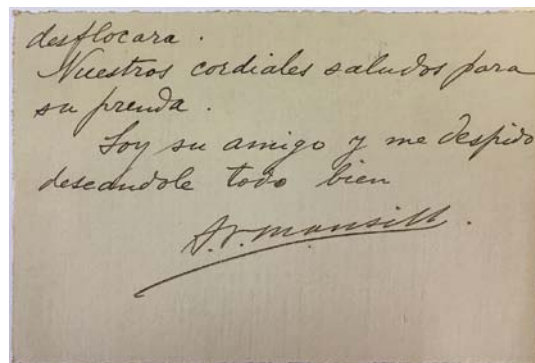 desflocara.
Nuestros cordiales saludos para
su prenda.
Soy su amigo y me despido
deseandole todo bien